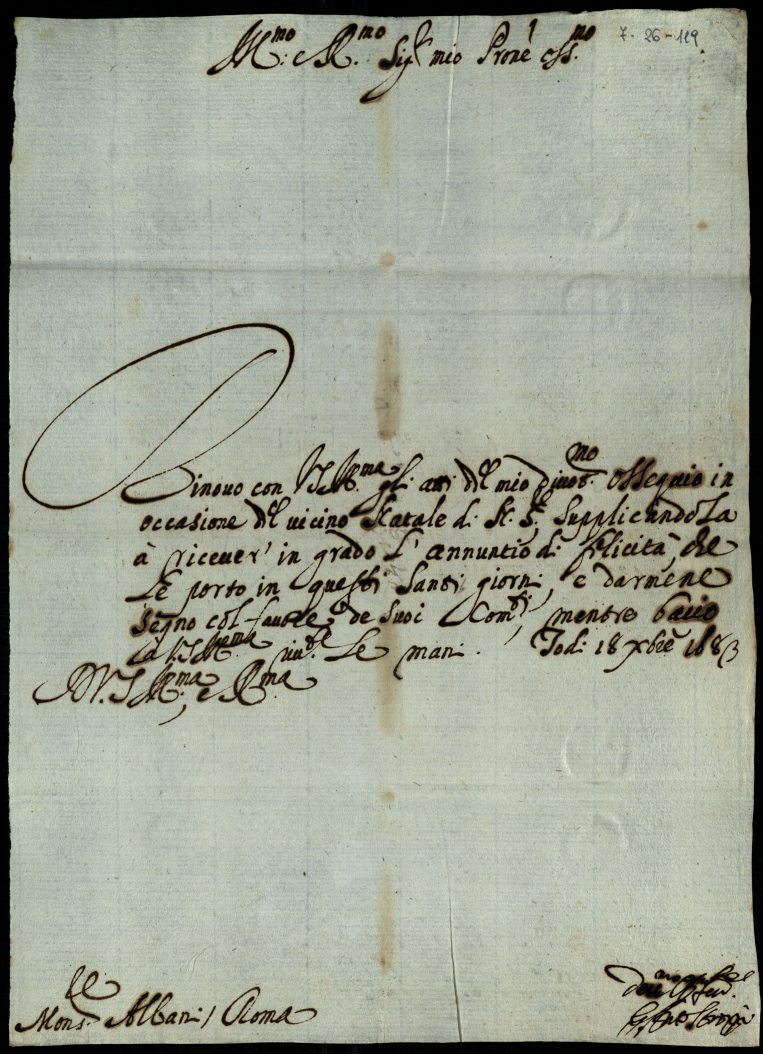 7-26-119
Ill.mo e R.mo Sig.r mio Prone oss.mo
Rinouo con V.S. Ill.ma gl'atti del mio diuot.mo ossequio in
occasione del uicino Natale di N. S., supplicandola
à riceuer' in grado l'annuntio di felicità, che
le porto in questi santi giorni, e darmene
segno col fauore de suoi Com.di, mentre bacio
à V.S. Ill.ma riu.te le mani. Todi 18 xbre 168
D V.S. Ill.ma, e R.ma
Mons.re Albani / Roma